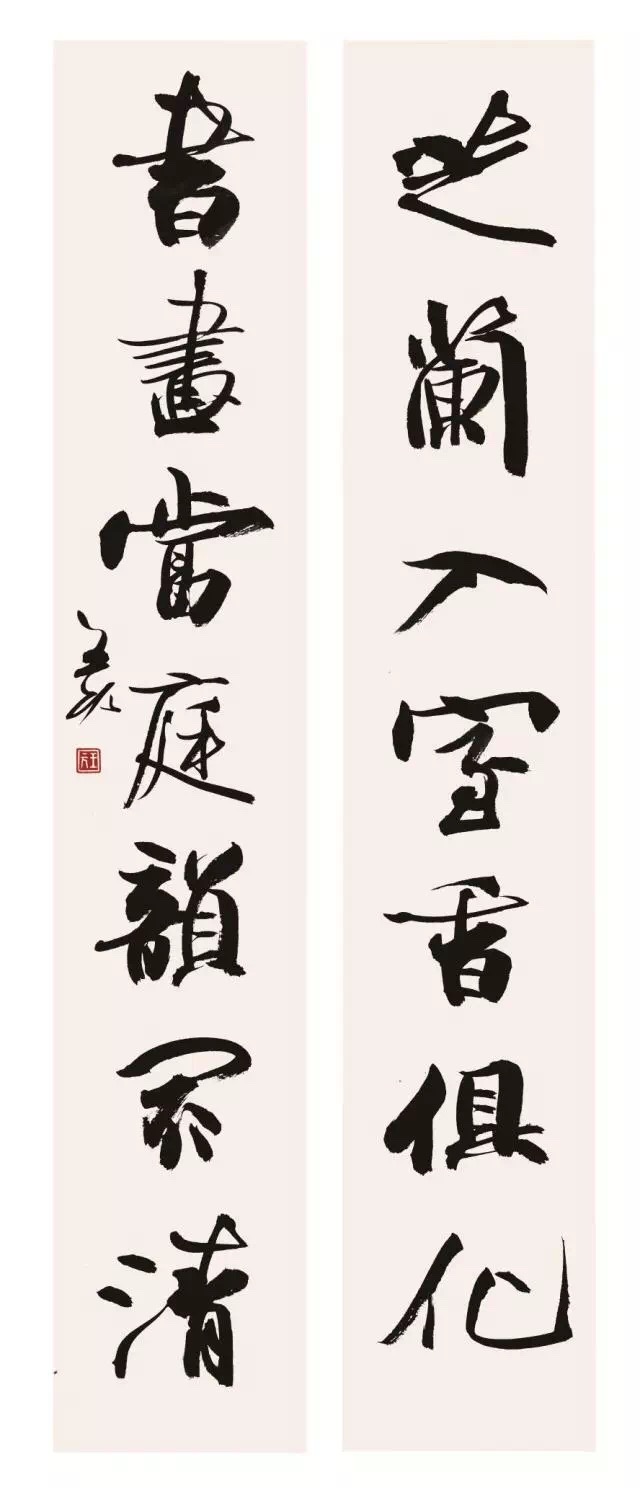 芝蘭入室香俱化
書畫當庭韻清